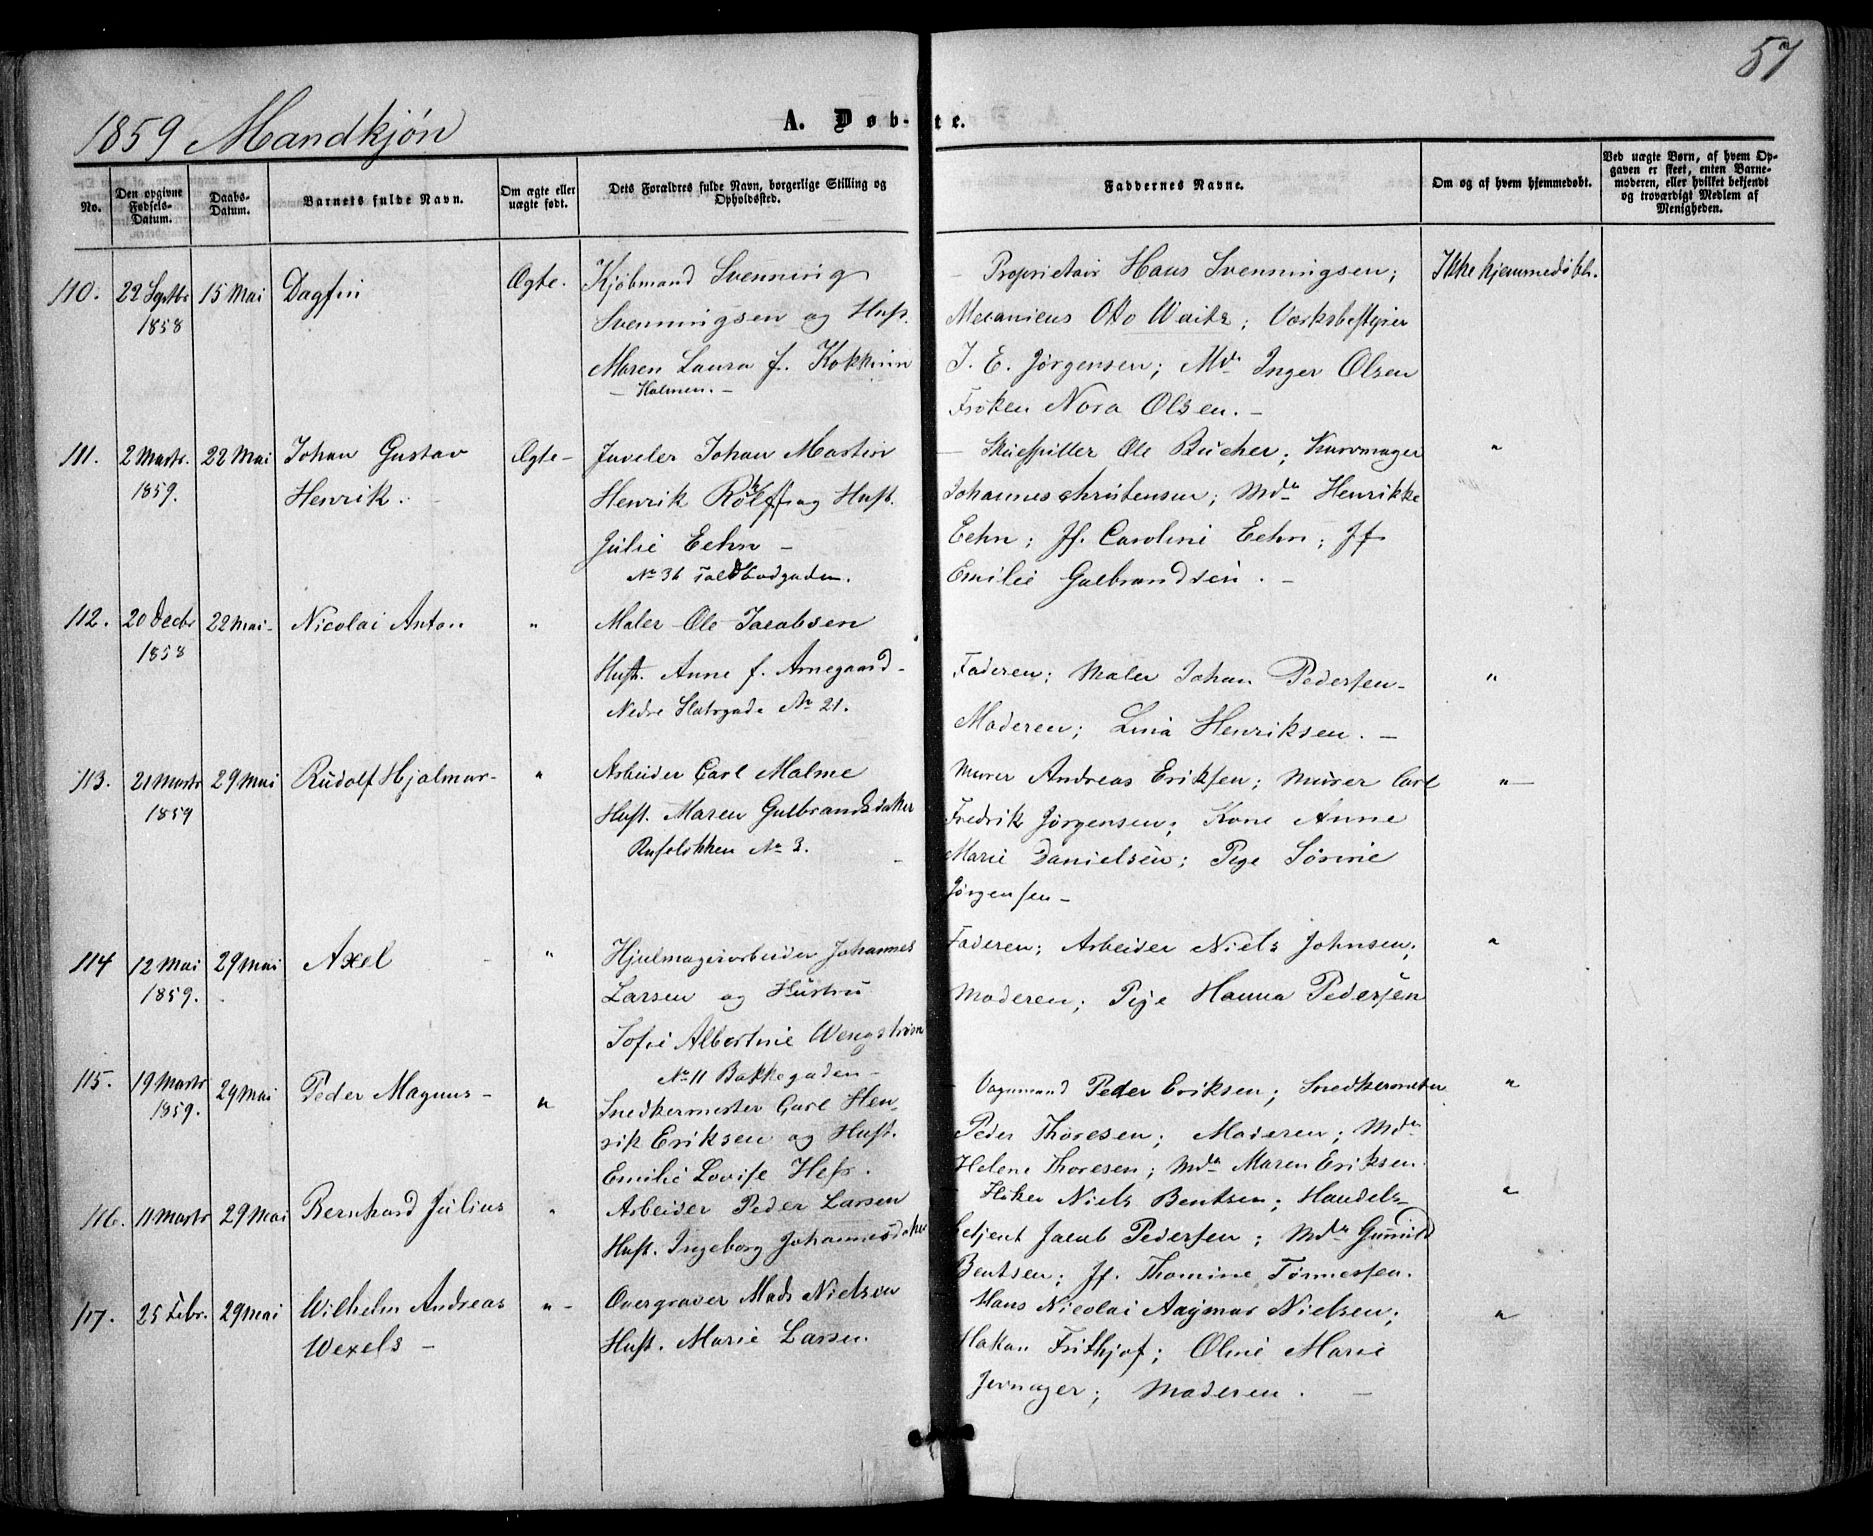 57
1859 Mandkjøn
A. Døb-te.
No.
Den opgivne Fødsels-Datum.
Daabs-Datum.
Barnets fulde Navn.
Om ægte eller uægte født.
Dets Forældres fulde Navn, borgerlige Stilling og Opholdssted.
Faddernes Navne.
Om og af hvem hjemmedøbt.
Ved uægte Børn, af hvem Opgaven er skeet, enten Barnemoderen, eller hvilket bekjendt og troværdigt Medlem af Menigheden.
110. 22 Septbr 1858 15 Mai Dagfin Ægte.
Kjøbmand Svenning
Svenningsen og Hust.
Maren Laura f. Kokkinn
Holmen. -
- Proprietair Hans Svenningsen;
Mecanicus Otto Waitz; Værksbestyrer
J. E. Jørgensen; Mda Inger Olsen
Frøken Nora Olsen. -
Ikke hjemmedøbt.
111. 2 Marts 1859. 22 Mai Johan Gustav
Henrik. Ægte -
Juveler Johan Martin
Henrik Rolf og Hust.
Julie Eehn -
No 36 Toldbodgaden.
- Skuespiller Ole Bucher; Kurvmager
Johannes Christensen; Mda Henrikke
Eehn; Jf. Caroline Eehn; Jf
Emilie Gulbrandsen. -
"
112. 20 Decbr 1858 22 Mai - Nicolai Anton "
Maler Ole Jacobsen
Hust. Anne f. Arnegaard -
Nedre Slotsgade No 21.
Faderen; Maler Johan Pedersen -
Moderen; Lina Henriksen. -
"
113. 21 Marts 1859 29 Mai Rudolf Hjalmar - "
Arbeider Carl Malme
Hust. Maren Gulbrandsdaker
Ruseløkken No 3.
Murer Andreas Eriksen; Murer Carl
Fredrik Jørgensen; Kone Anne
Marie Danielsen; Pige Sørine
Jørgensen -
" -
114 12 Mai 1859. 29 Mai Axel "
Hjulmagerarbeider Johannes
Larsen og Hustru
Sofie Albertine Wengstrøm
No 11 Bakkegaden -
Faderen; Arbeider Niels Johnsen;
Moderen; Pige Hanna Pedersen
"
115. 19 Marts 1859. 29 Mai Peder Magnus - "
Snedkermester Carl Hen-
rik Eriksen og Hust.
Emilie Lovise
- Vognmand Peder Eriksen; Snedkermester
Peder Thoresen; Moderen; Mda
Helene Thoresen; Mda Maren Eriksen.
"
116. 11 Marts 29 Mai Bernhard Julius "
Arbeider Peder Larsen
Hust. Ingeborg Johannesdaker
- Høker Niels Bentsen; Handels-
betjent Jacob Pedersen; Mda Gunild
Bentsen; Jf. Thomine Tønnessen.
"
117. 25 Febr. 29 Mai Wilhelm Andreas
Wexels - " -
Overgraver Mads Nielsen
Hust. Marie Larsen.
Hans Nicolai Aagmar Nielsen;
Hakon Frithjof; Oline Marie
Jernager; Moderen. -
"